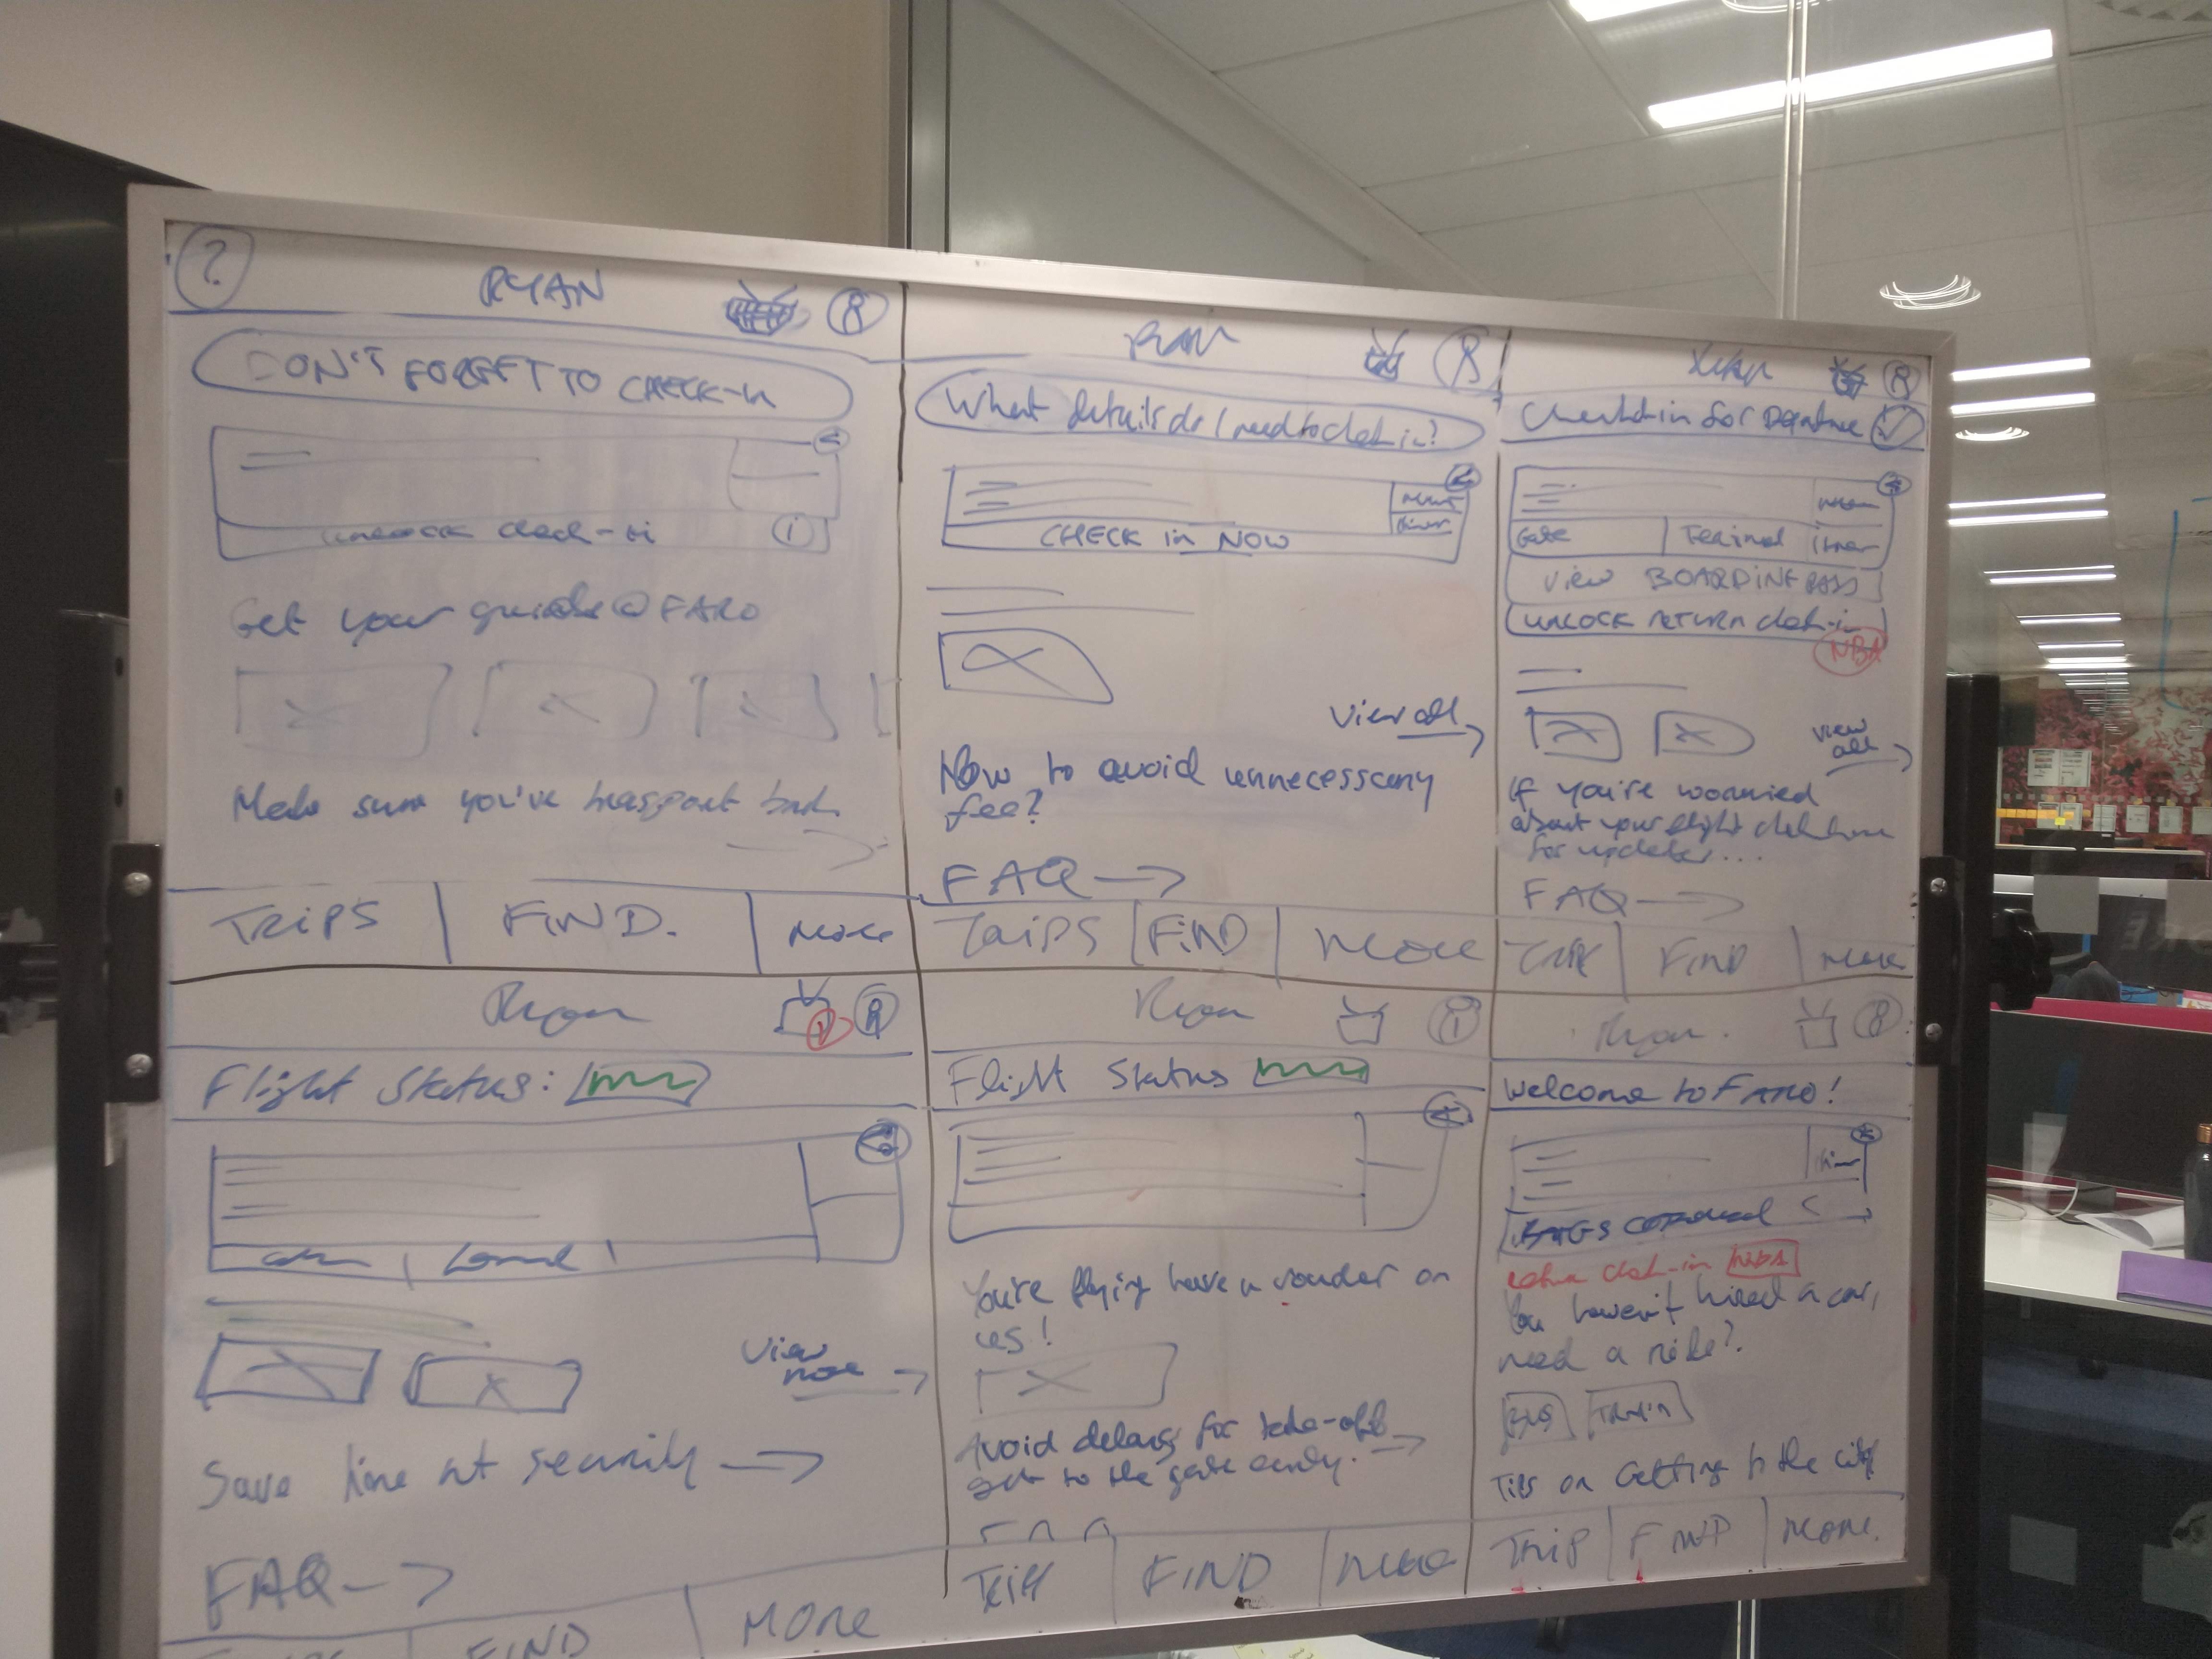 ?
RYAN
DON'T FORGET TO CHECK-in
unlock check-in
i
Get your guide @ FARO
Make sure you've transport
TRIPS FIND. MORE
What details do I need to check in?
CHECK in NOW
View all
How to avoid unnecessary
fee?
FAQ
TRIPS FIND MORE
Checkd in for Departure
Gate Terminal
View BOARDING PASS
UNLOCK RETURN check-in
NBA
view
all
If you're worried
about your flight
for updates...
FAQ
FIND MORE
Ryan
Flight Status:
View
more
Save time at security
FAQ
FIND MORE
Ryan
Flight Status
You're flying have a wonder on
us!
Avoid delays for take-off
get to the gate early.
FIND MORE
Ryan.
Welcome to FARO!
BAGS
check-in NBA
You haven't hired a car,
need a ride?
BUS TRAIN
Tips on Getting to the city
TRIP FIND MORE.